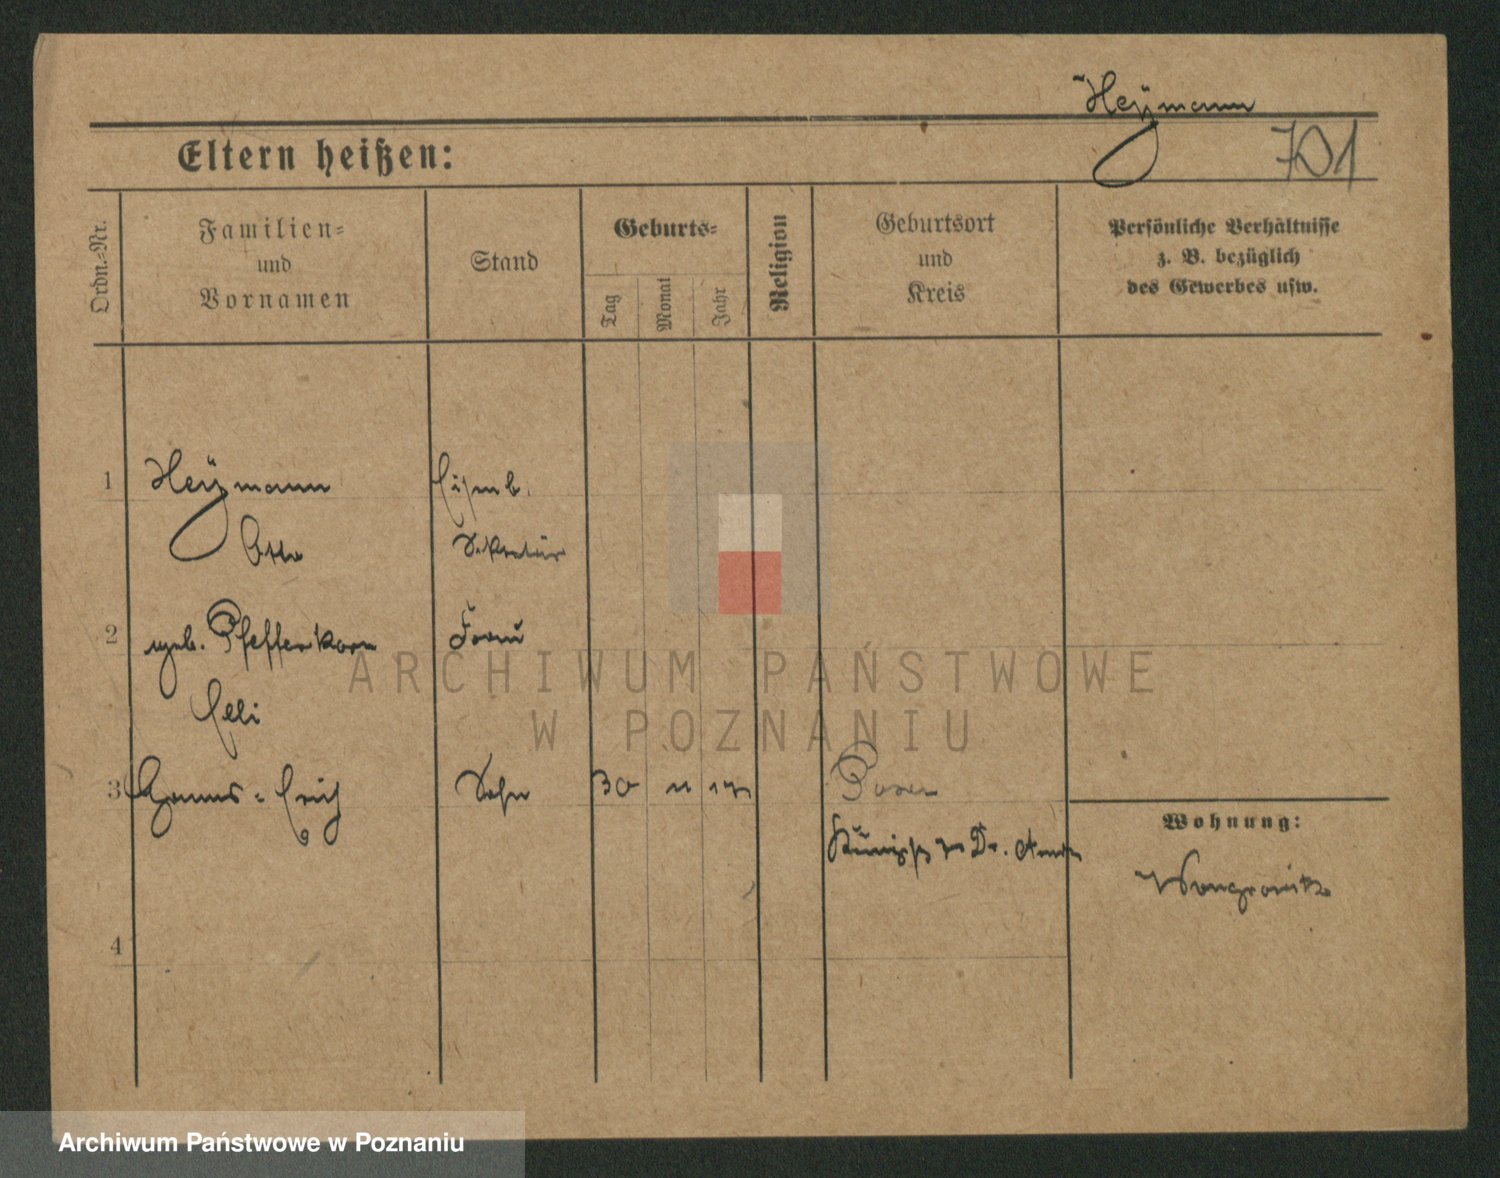 Heÿmann
701
Eltern heißen:
Ordn.=Nr.
Familien=
und
Vornamen
Stand
Geburts=
Tag
Monat
Jahr
Religion
Geburtsort
und
Kreis
Persönliche Verhältnisse
z. B. bezüglich
des Gewerbes usw.
1
Heÿmann
Eisenb.
Otto
Sekretär
2
geb. Pfefferkorn
Frau
Elli
ARCHIWUM PAŃSTWOWE
W POZNANIU
3
Hanns-Erich
Sohn
30
11
17
Posen
Dr.
Wohnung:
Wongrowitz
4
Archiwum Państwowe w Poznaniu